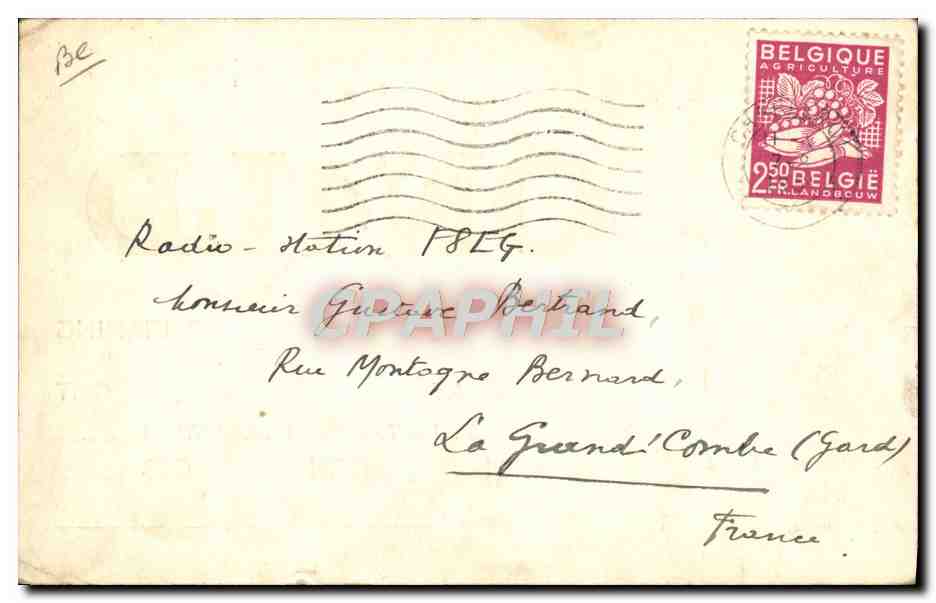 BC
BELGIQUE
AGRICULTURE
2.50 FR.
BELGIË
LANDBOUW
Radio - Station F8EG.
Monsieur Gustave Bertrand,
CPAPHIL
Rue Montagne Bernard,
La Grand'Combe (Gard)
France.